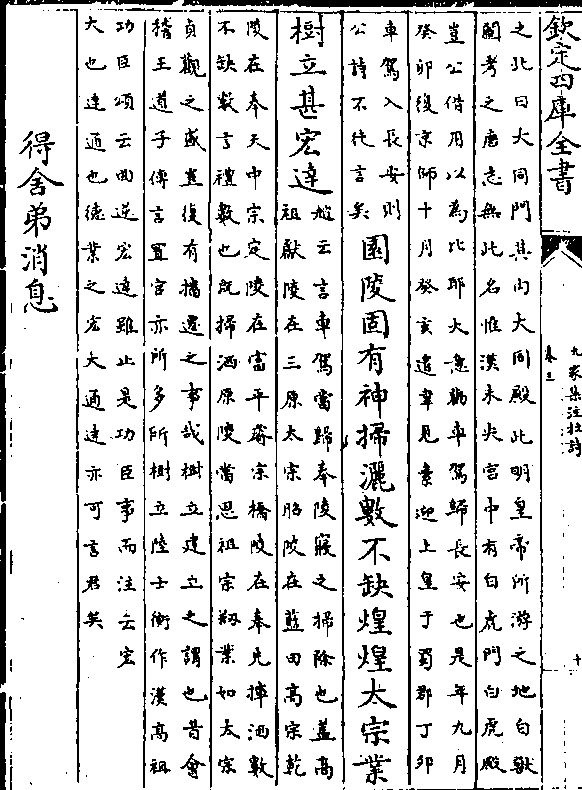 欽定四庫全書
九家集注杜詩
卷三
十
之北曰大同門其內大同殿此明皇帝所游之地白獸
闥考之唐志無此名惟漢未央宮中有白虎門白虎殿
豈公借用以為比耶大意車駕歸長安也是年九月
癸卯復京師十月癸亥遣韋見素迎上皇于蜀郡丁卯
車駕入長安則
公詩不徒言矣
園陵固有神掃灑數不缺煌煌太宗業
樹立甚宏達
趙云言車駕當歸奉陵寢之掃除也蓋高
祖獻陵在三原太宗昭陵在藍田高宗乾
陵在奉天中宗定陵在富平睿宗橋陵在奉先掃洒數
不缺數言禮數也既掃洒原陵當思祖宗剏業如太宗
貞觀之盛豈復有播遷之事哉樹立建立之謂也昔會
稽王道子傳言置官亦所多所樹立陸士衡作漢高祖
功臣頌云曲逆宏達雖止是功臣事而注云宏
大也達通也德業之宏大通達亦可言君矣
得舍弟消息